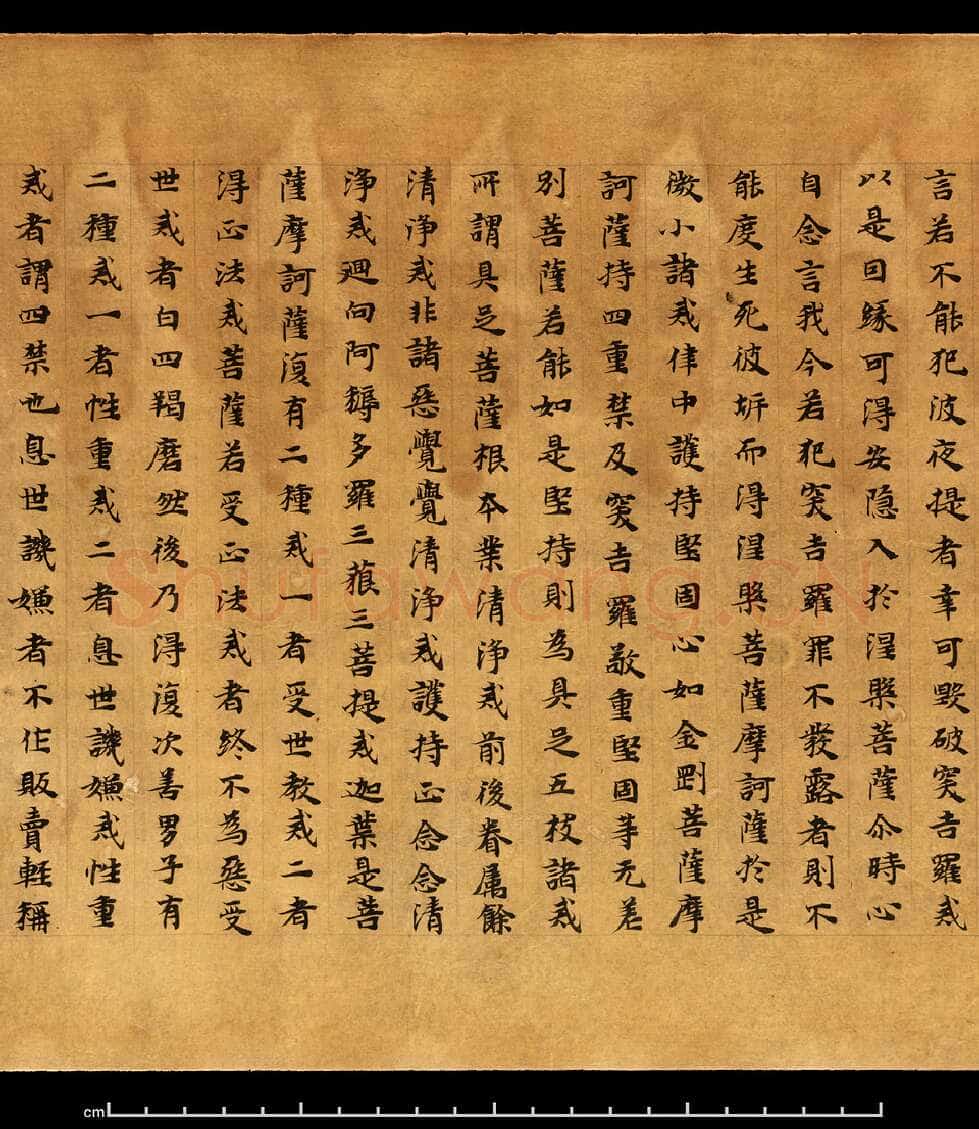 言若不能犯波夜提者幸可毀破突吉羅戒
以是因緣可得安隱入於涅槃菩薩尒時心
自念言我今若犯突吉羅罪不發露者則不
能度生死彼岍而得涅槃菩薩摩訶薩於是
微小諸戒律中護持堅固心如金剛菩薩摩
訶薩持四重禁及突吉羅敬重堅固等无差
別菩薩若能如是堅持則為具足五枝諸戒
所謂具足菩薩根本業清淨戒前後眷屬餘
清淨戒非諸惡覺覺清淨戒護持正念念清
淨戒迴向阿耨多羅三藐三菩提戒迦葉是菩
薩摩訶薩復有二種戒一者受世教戒二者
得正法戒菩薩若受正法戒者終不為惡受
世戒者白四羯磨然後乃得復次善男子有
二種戒一者性重戒二者息世譏嫌戒性重
戒者謂四禁也息世譏嫌者不作販賣輕稱
Shufawang.CN
cm